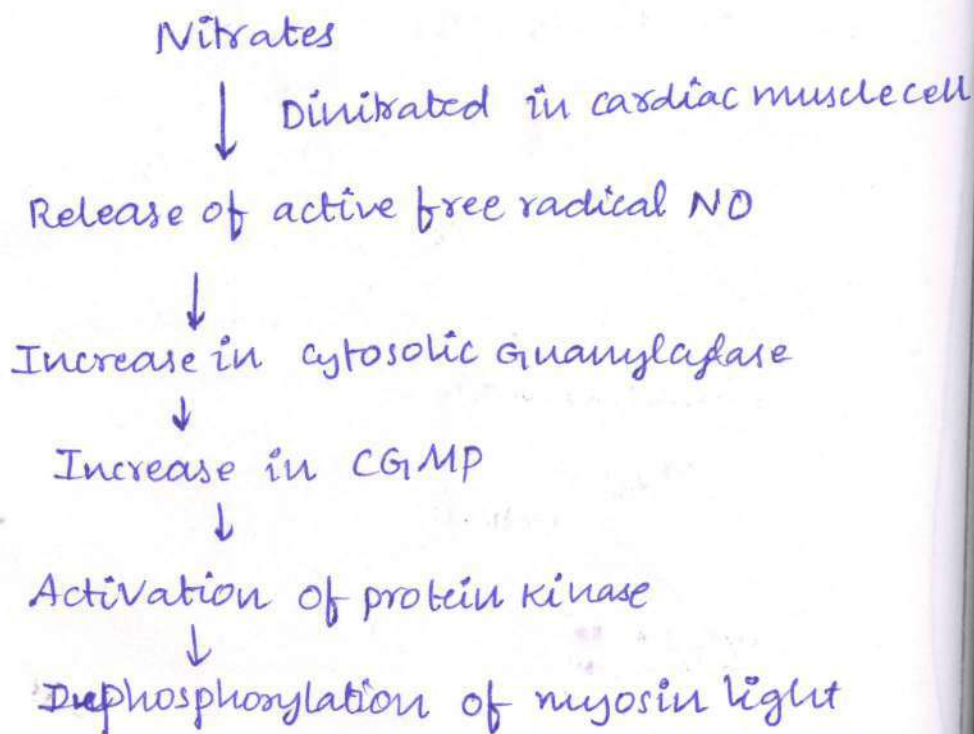 Nitrates
↓ Dinitrated in cardiac muscle cell
Release of active free radical NO
↓
Increase in cytosolic Guanylaflase
↓
Increase in CGMP
↓
Activation of protein kinase
↓
Dephosphorylation of myosin light